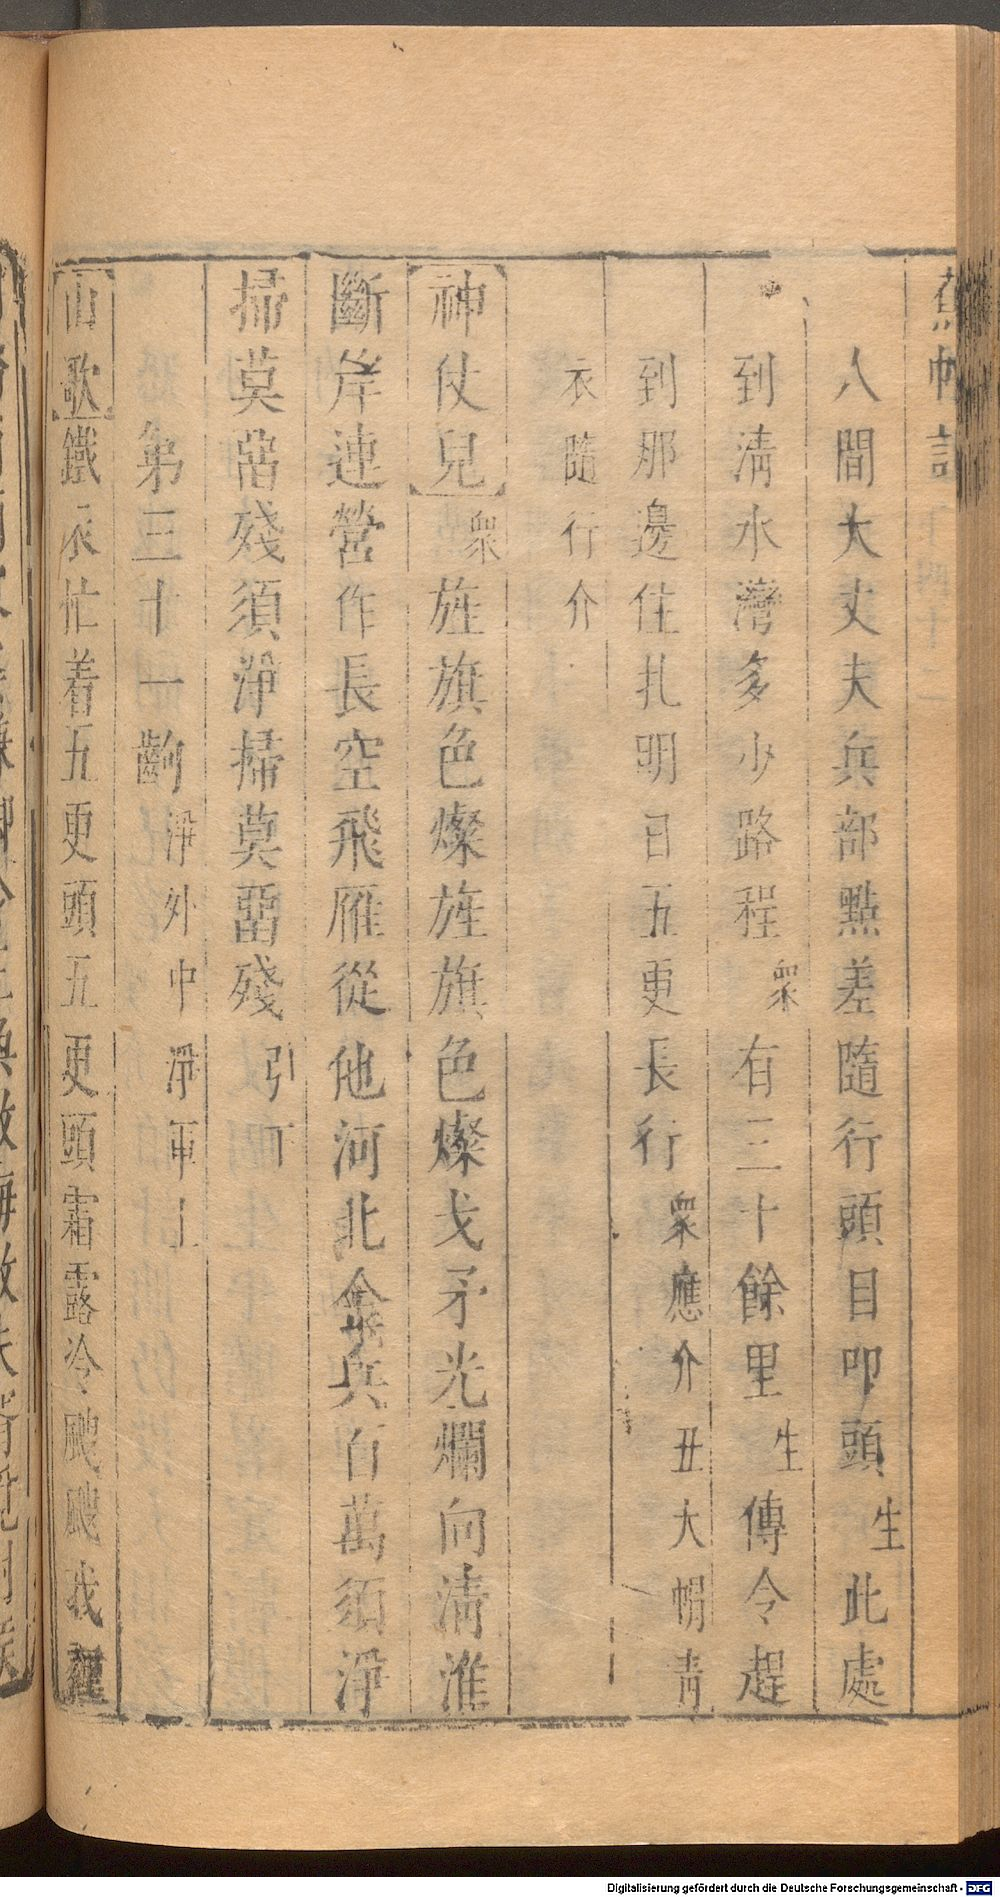 蕉帕記
人間大丈夫兵部點差隨行頭目叩頭生此處
到清水灣多少路程衆有三十餘里生傳令趕
到那邊住扎明日五更長行衆應介丑大帽青
衣隨行介
神仗兒衆旌旗色燦旌旗色燦戈矛光爛向清淮
斷岸連營作長空飛雁從他河北兵百萬須淨
掃莫畱殘須淨掃莫畱殘引下
第三十一齣淨外中淨軍上
山歌鐵衣忙着五更頭五更頭霜露冷颼颼我
Digitalisierung gefördert durch die Deutsche Forschungsgemeinschaft - DFG